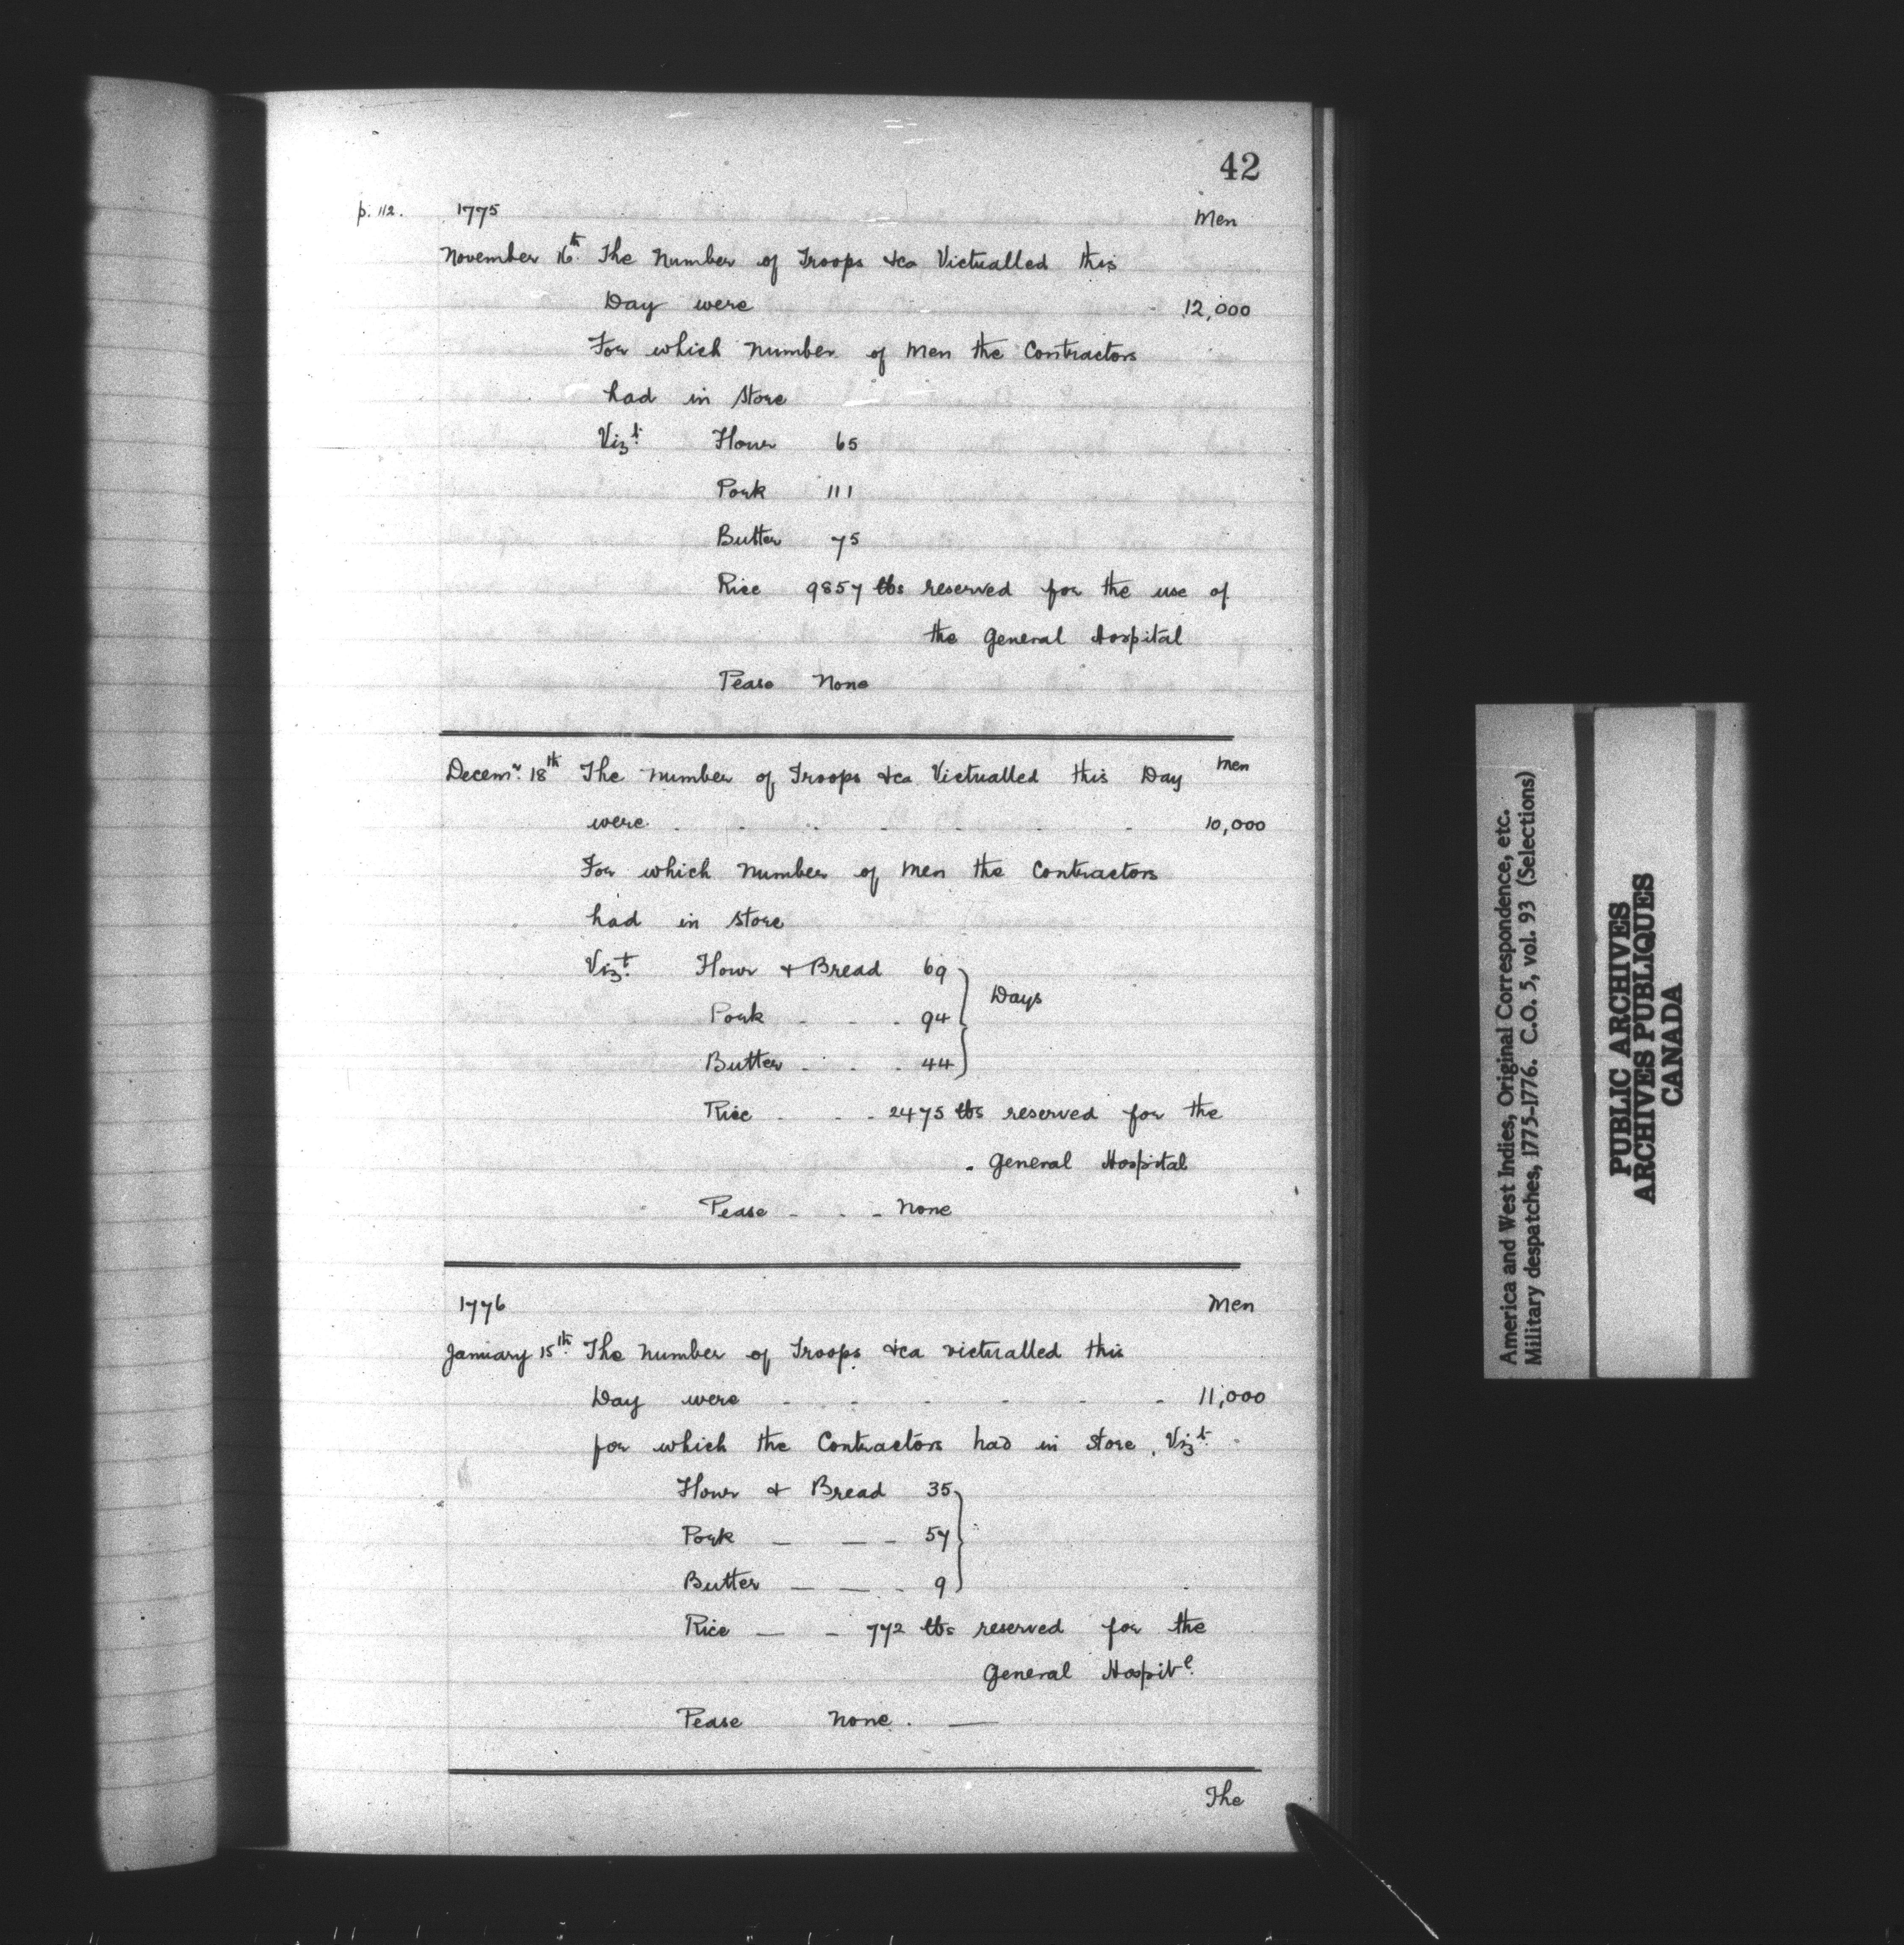 42
p. 112. 1775 Men
November 16th. The Number of Troops &ca Victualled this
Day were - 12,000
For which Number of Men the Contractors
had in Store
Vizt. Flour 65
Pork 111
Butter 75
Rice 9857 lbs reserved for the use of
the General Hospital
Pease None
Decemr. 18th The Number of Troops &ca Victualled this Day Men
were - - - - - - - 10,000
For which Number of Men the Contractors
had in Store
Vizt. Flour & Bread 69
Days
Pork - - - 94
Butter - - - 44
Rice - - - 2475 lbs reserved for the
- General Hospital
Pease - - - None
1776 Men
January 15th. The Number of Troops &ca victualled this
Day were - - - - - - 11,000
for which the Contractors had in Store, Vizt.
Flour & Bread 35
Pork — — - 57
Butter — — - 9
Rice — - 772 lbs reserved for the
General Hospitl.
Pease None. —
The
America and West Indies, Original Correspondence, etc.
Military despatches, 1775-1776. C.O. 5, vol. 93 (Selections)
PUBLIC ARCHIVES
ARCHIVES PUBLIQUES
CANADA